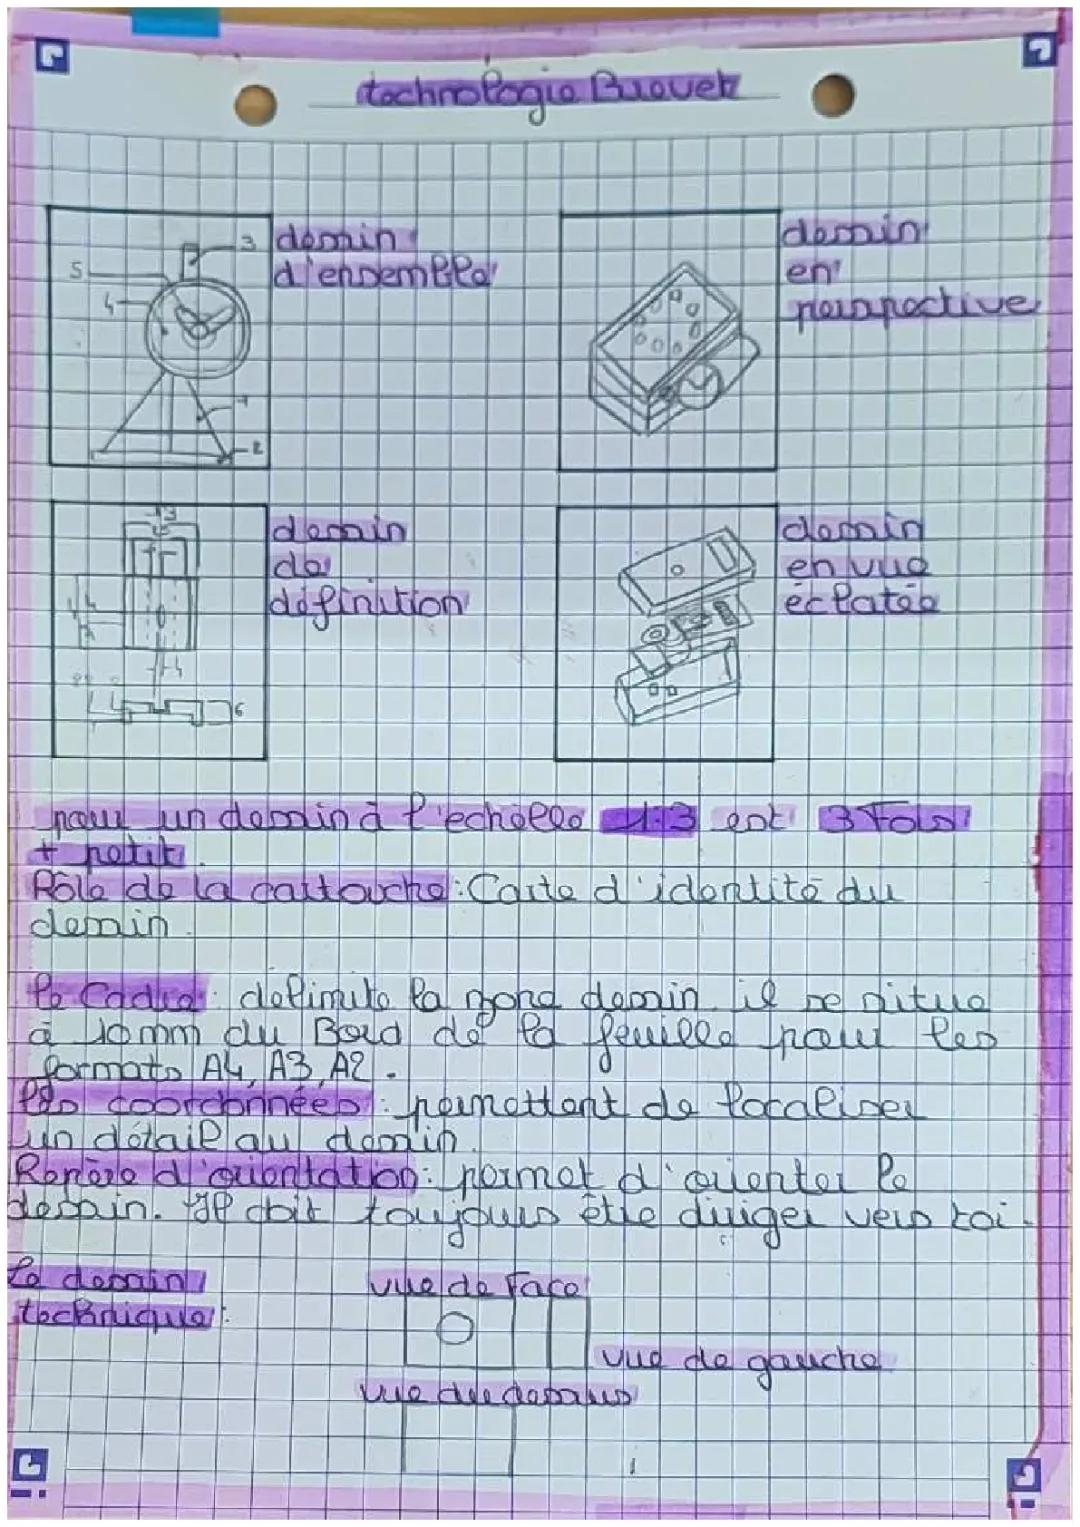 technologie Brevet
dessin
d'ensemble
3
5
4
1
2
dessin
en
perspective
dessin
de
définition
4
6
dessin
en vue
éclatée
pour un dessin à l'echelle 1:3 est 3 Fois
+ petit.
Rôle de la cartouche : Carte d'identité du
dessin.
le Cadre : délimite la zone dessin il se situe
à 10mm du Bord de la feuille pour les
formats A4, A3, A2.
les coordonnées : permettent de localiser
un détail au dessin.
Repère d'orientation : permet d'orienter le
dessin. Il doit toujours être diriger vers toi.
Le dessin
technique :
vue de Face
vue de gauche
vue de dessus